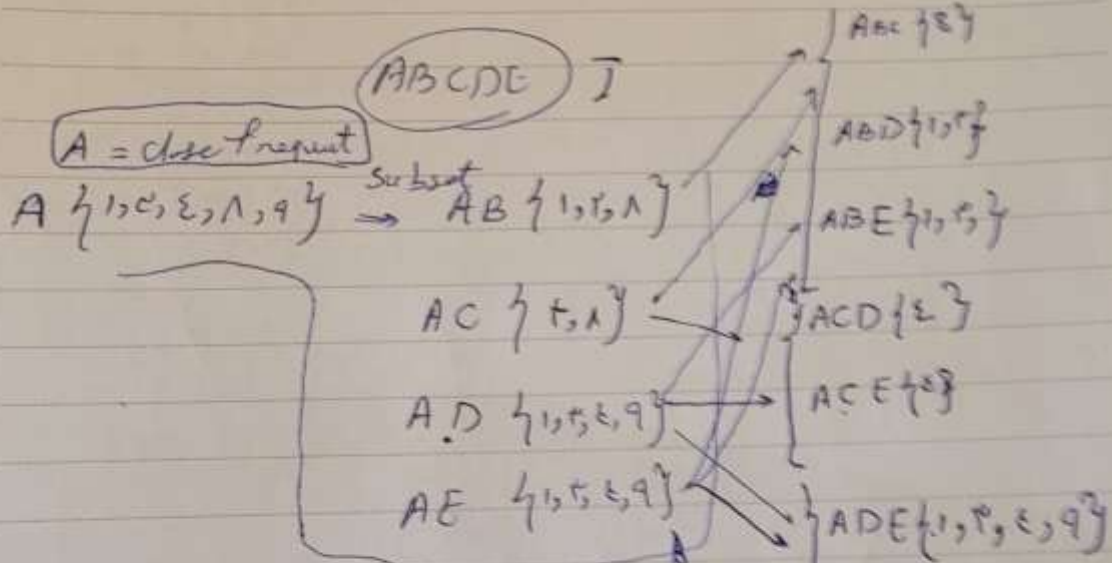 ABCDE I
A = close frequent
A {١,٢,٤,٨,٩} subset → AB {١,٢,٨}
AC {٢,٨}
A.D {١,٢,٤,٩}
AE {١,٢,٤,٩}
ABC {٤}
ABD {١,٢}
ABE {١,٢,}
ACD {٤}
ACE {٤}
ADE {١,٢,٤,٩}